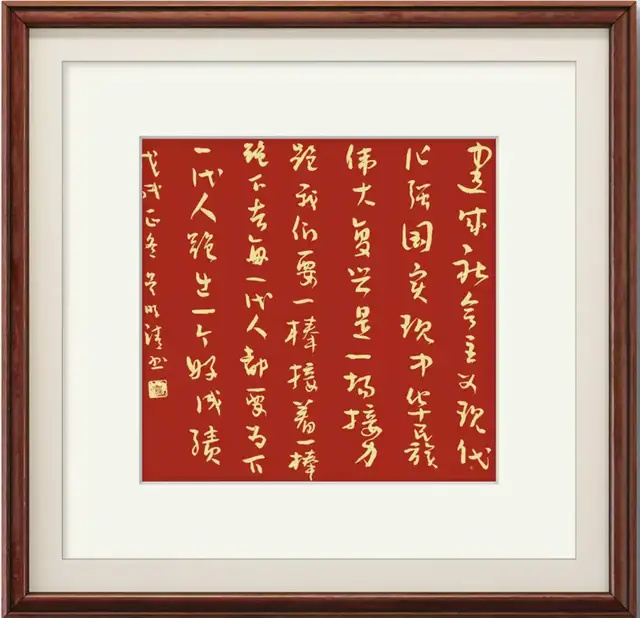 建成社会主义现代
化强国实现中华民族
伟大复兴是一场接力
跑我们要一棒接着一棒
跑下去每一代人都要为下
一代人跑出一个好成绩
戊戌正冬吴明清书